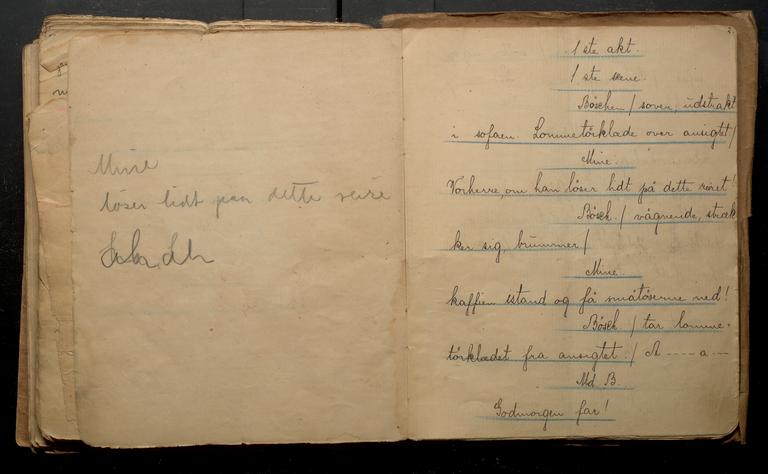 Mine
löser lidt paa dette
2
1 ste akt.
1 ste scene.
Böschen / sover, udstrakt
i sofaen. Lommetörklæde over ansigtet /
Mine.
Vorherre, om han löser lidt på dette röret!
Bösch. / vågnende, stræk
ker sig, brummer /
Mine.
kaffien istand og få småtöserne ned!
Bösch. / tar lomme-
törklædet fra ansigtet. / A ---- a --
Md. B.
Godmorgen far!